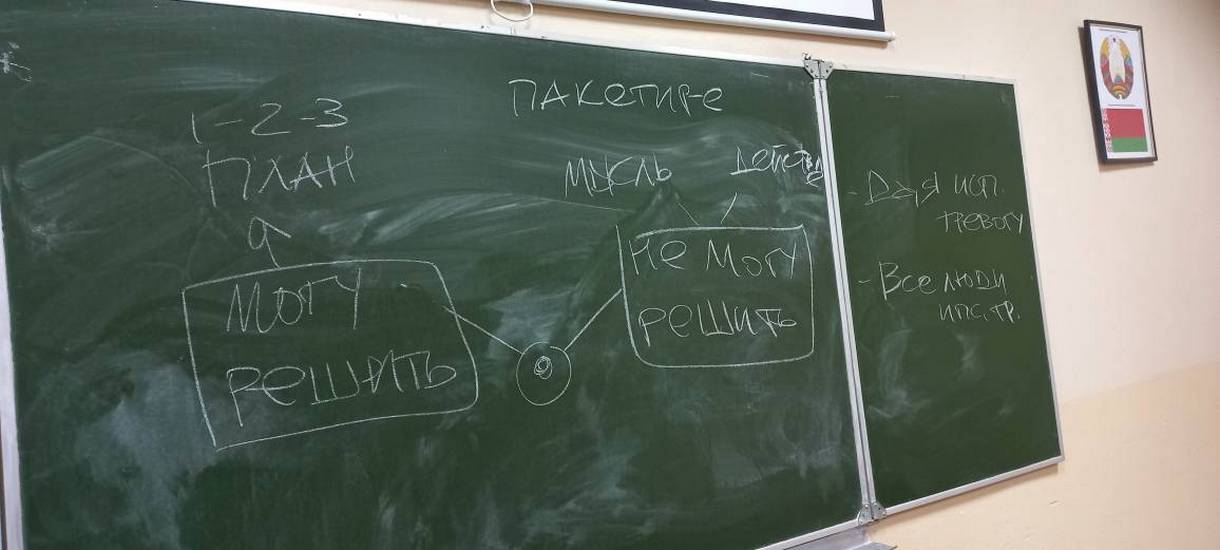 ПАКЕТИР-Е
1-2-3
ПЛАН
МЫСЛЬ
ДЕЙСТВ
МОГУ
РЕШИТЬ
НЕ МОГУ
РЕШИТЬ
- Да, я исп.
тревогу
- Все люди
исп. тр.